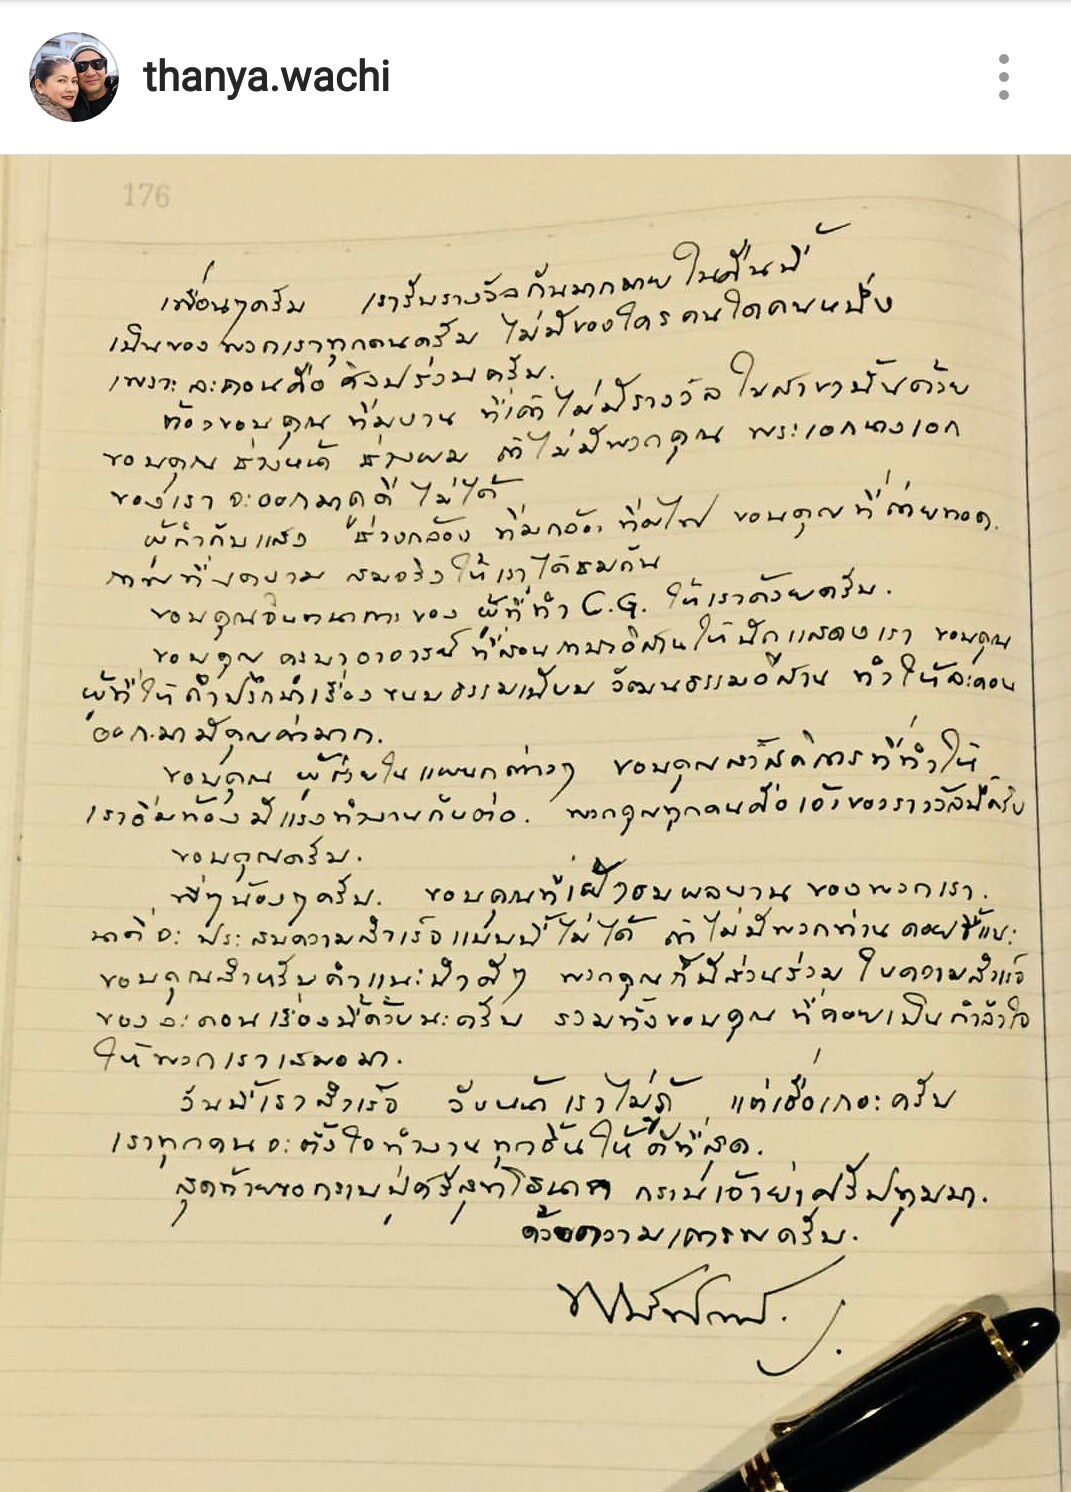 thanya.wachi
176
เพื่อนๆครับ เรารับรางวัลกันมากมาย ในคืนนี้
เป็นของ พวกเราทุกคนครับ ไม่มีของใคร คนใดคนหนึ่ง
เพราะ ละคอนคือ ศิลปร่วมครับ.
ต้องขอบคุณ ทีมงาน ที่เค้าไม่มีรางวัล ในสาขานั้นด้วย
ขอบคุณ ช่างหน้า ช่างผม ถ้าไม่มีพวกคุณ พระเอกนางเอก
ของเรา จะออกมาดูดี ไม่ได้
ผู้กำกับแสง ช่างกล้อง ทีมกล้อง ทีมไฟ ขอบคุณที่ถ่ายทอด.
ภาพที่งดงาม สมจริงให้เราได้ชมกัน
ขอบคุณจินตนาการของ ผู้ที่ทำ C.G. ให้เราด้วยครับ.
ขอบคุณ ครูบาอาจารย์ ที่สอนภาษาอีสานให้นักแสดงเรา ขอบคุณ
ผู้ที่ให้คำปรึกษาเรื่อง ขนบธรรมเนียม วัฒนธรรมอีสาน ทำให้ละคอน
ออกมามีคุณค่ามาก.
ขอบคุณ ผู้ช่วยในแผนกต่างๆ ขอบคุณสวัสดิการที่ทำให้
เราอิ่มท้องมีแรงทำงานกันต่อ. พวกคุณทุกคนคือเจ้าของรางวัลนี้ครับ
ขอบคุณครับ.
พี่ๆน้องๆครับ. ขอบคุณที่เฝ้าชมผลงาน ของพวกเรา.
นาคี จะ ประสบความสำเร็จแบบนี้ไม่ได้ ถ้าไม่มีพวกท่าน คอยชี้แนะ
ขอบคุณสำหรับคำแนะนำดีๆ พวกคุณก็มีส่วนร่วม ในความสำเร็จ
ของ ละคอนเรื่องนี้ด้วยนะครับ รวมทั้งขอบคุณ ที่คอยเป็นกำลังใจ
ให้พวกเราเสมอมา.
วันนี้เราสำเร็จ วันหน้าเราไม่รู้ แต่เชื่อเถอะครับ
เราทุกคนจะตั้งใจทำงานทุกชิ้นให้ดีที่สุด.
สุดท้ายขอกราบปู่ศรีสุทโธนาค กราบเจ้าย่าศรีปทุมมา.
ด้วยความเคารพครับ.